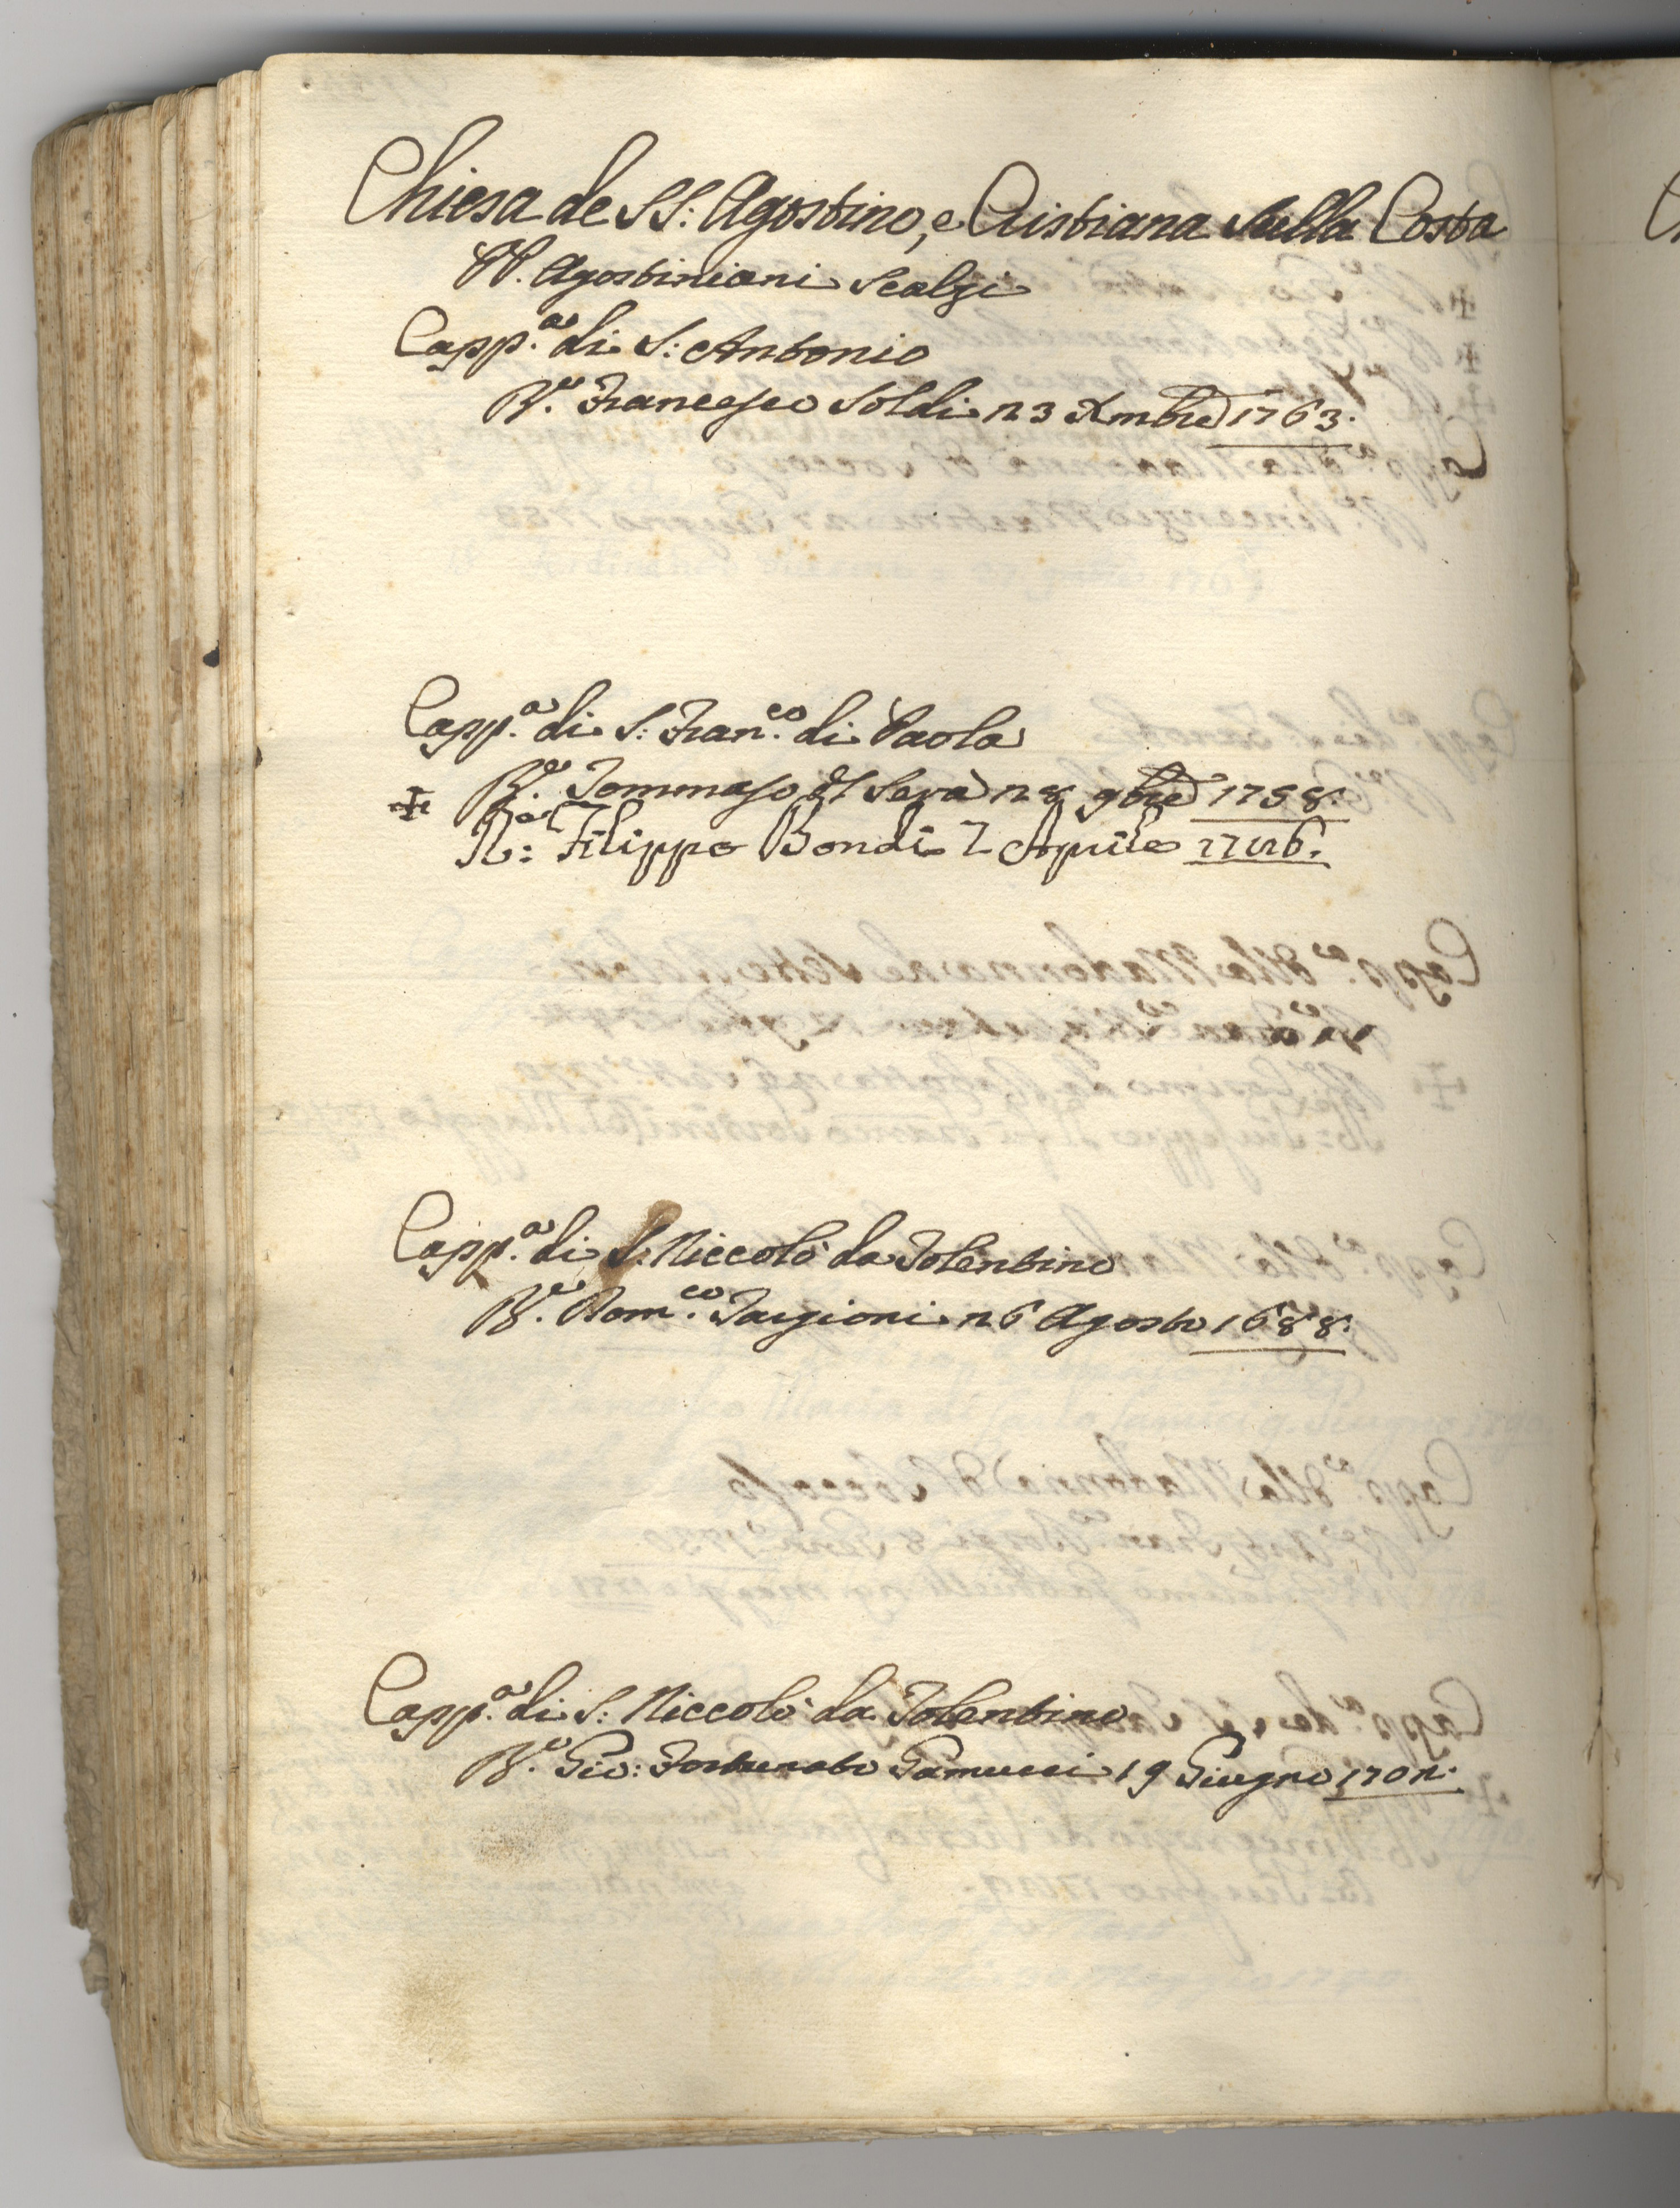 Chiesa de SS: Agostino, e Cristiana Sulla Costa
PP. Agostiniani Scalzi
Capp.a di S: Antonio
R.e Francesco Soldi 23 Xmbre 1763.
Capp.a di S: Fran.co di Paola
R.e Tommaso del Sera 28 9bre 1758.
R: Filippo Bondi 7 Aprile
Capp.a di S: Niccolò da Tolentino
R.e Dom.co Targioni 26 Agosto 1688.
Capp.a di S: Niccolò da Tolentino
R.e Gio: Fortunato Gamucci 19 Giugno 1702.